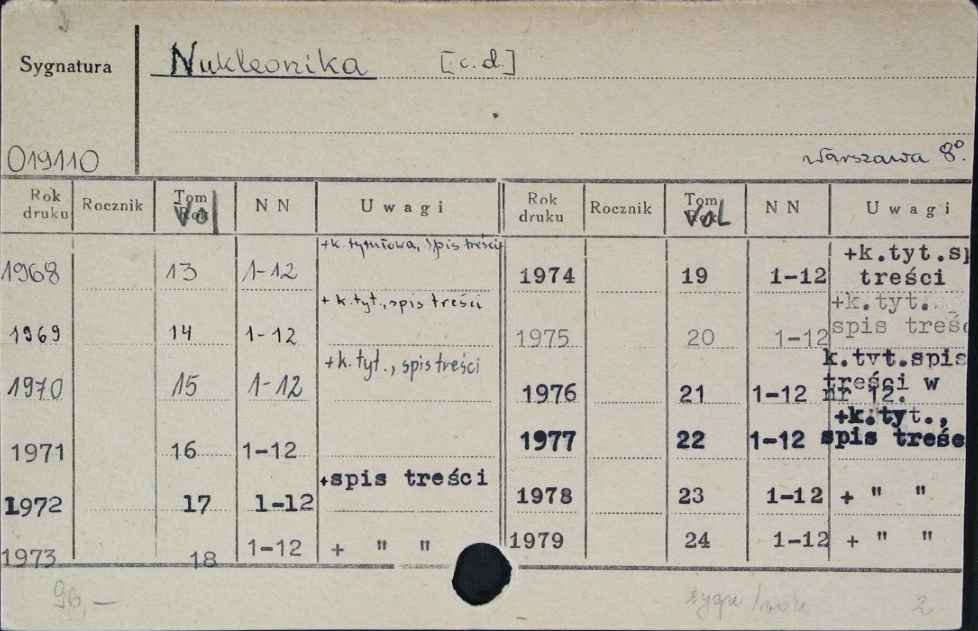 Sygnatura
Nukleonika [c.d.]
019110
Warszawa 8°.
Rok druku Rocznik Tom Vol NN Uwagi Rok druku Rocznik Tom Vol NN Uwagi
1968 13 1-12 +k. tytułowa, spis treści
1969 14 1-12 +k.tyt., spis treści
1970 15 1-12 +k.tyt., spis treści
1971 16 1-12
1972 17 1-12 +spis treści
1973 18 1-12 + " "
1974 19 1-12 +k.tyt.sp
treści
1975 20 1-12 +k.tyt.
spis treśc
1976 21 1-12 k.tyt.spis
treści w
nr 12.
1977 22 1-12 +k.tyt.,
spis treśc
1978 23 1-12 + " "
1979 24 1-12 + " "
96,—
2